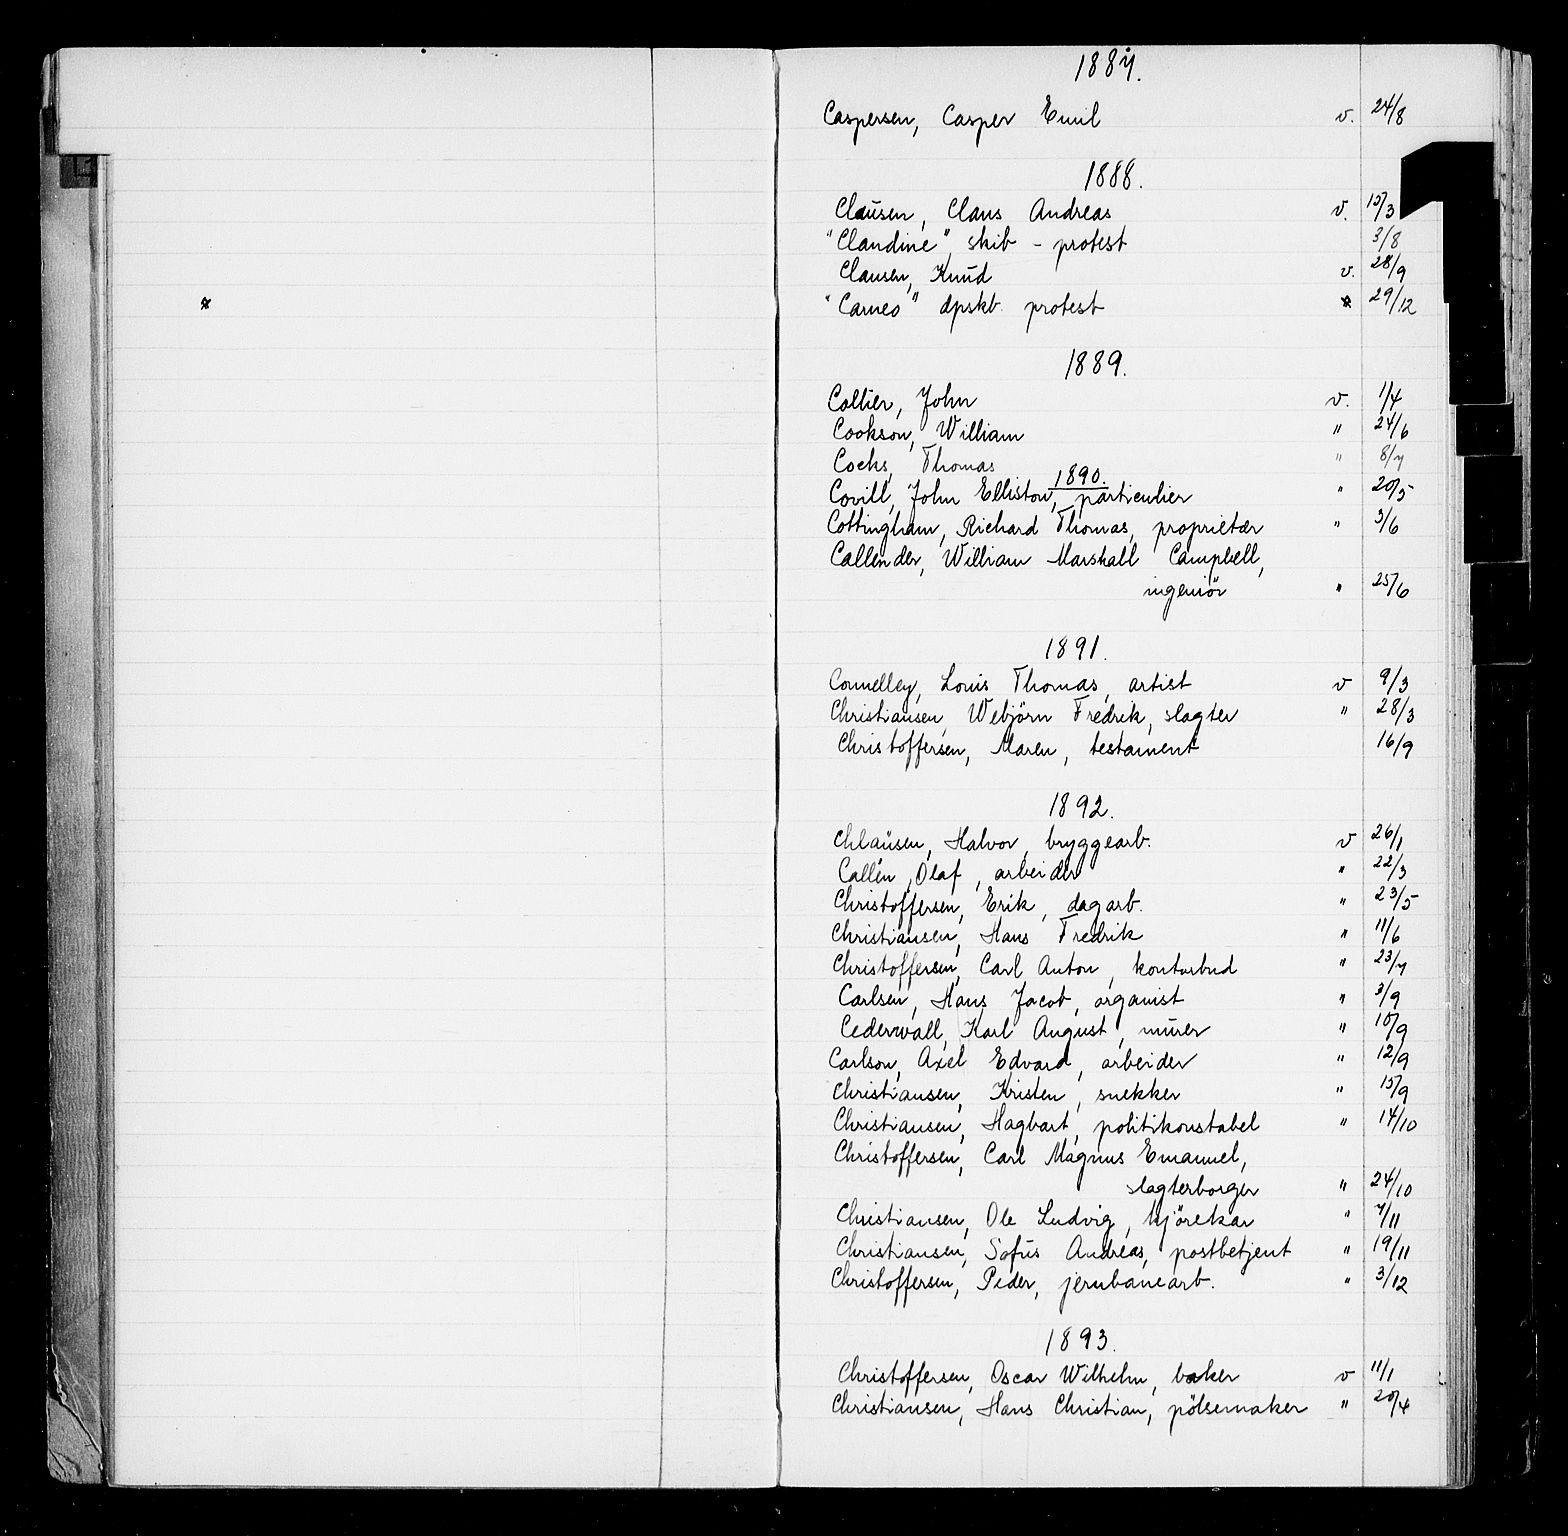 1887.
Caspersen, Casper Emil v. 24/8
1888.
Claüsen, Claus Andreas v. 15/3
"Claudine" skib - protest 3/8
Clausen, Knud v. 28/9
"Cameo" dpskb. protest 29/12
1889.
Collier, John v. 1/4
Cookson, William " 24/6
Cocks, Thomas " 8/7
1890.
Covill, John Elliston, particulier " 20/5
Cottingham, Richard Thomas, proprietær " 3/6
Callender, William Marshall Campbell,
ingeniör " 25/6
1891.
Connelley, Louis Thomas, artist v 9/3
Christiansen, Webjörn Fredrik, slagter " 28/3
Christoffersen, Maren, testament 16/9
1892.
Chlaüsen, Halvor, bryggearb. v 26/1
Callén, Olaf, arbeider " 22/3
Christoffersen, Erik, dagarb. " 23/5
Christiansen, Hans Fredrik " 11/6
Christoffersen, Carl Anton, kontorbud " 23/7
Carlsen, Hans Jacob, organist " 3/9
Cederwall, Karl August, murer " 10/9
Carlson, Axel Edvard, arbeider " 12/9
Christiansen, Kristen, snekker " 15/9
Christiansen, Hagbart, politikonstabel " 14/10
Christoffersen, Carl Magnus Emanuel,
slagterborger " 24/10
Christiansen, Ole Ludvig, kjörekar " 7/11
Christiansen, Sofus Andreas, postbetjent " 19/11
Christoffersen, Peder, jernbanearb. " 3/12
1893.
Christoffersen, Oscar Wilhelm, baker v 11/1
Christiansen, Hans Christian, pölsemaker " 20/4